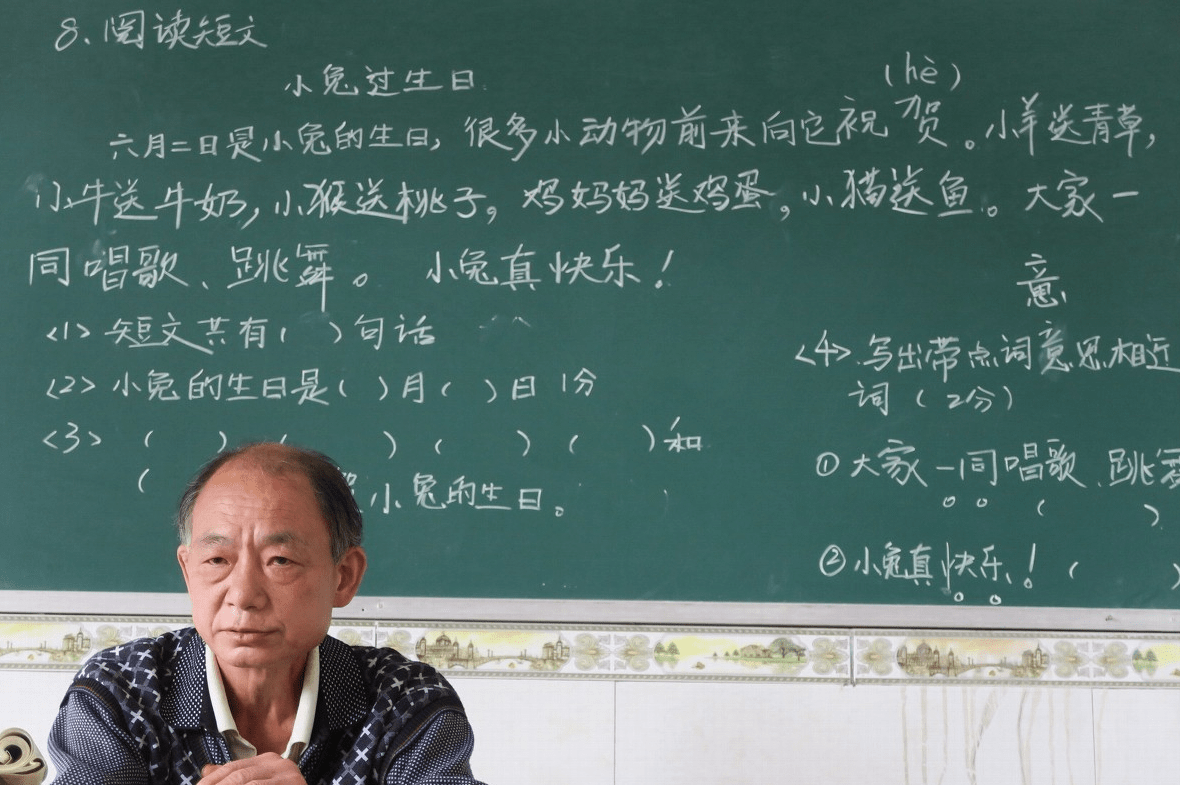 8、阅读短文
小兔过生日
(hè)
六月二日是小兔的生日，很多小动物前来向它祝贺。小羊送青草，
小牛送牛奶，小猴送桃子，鸡妈妈送鸡蛋，小猫送鱼。大家一
同唱歌、跳舞。 小兔真快乐！
<1> 短文共有( )句话
<2> 小兔的生日是( )月( )日 1分
<3> ( ) ( ) ( ) ( )和
( 小兔的生日。
意
<4> 写出带点词意思相近
词 (2分)
① 大家一同唱歌、跳舞
( )
② 小兔真快乐！ ( )